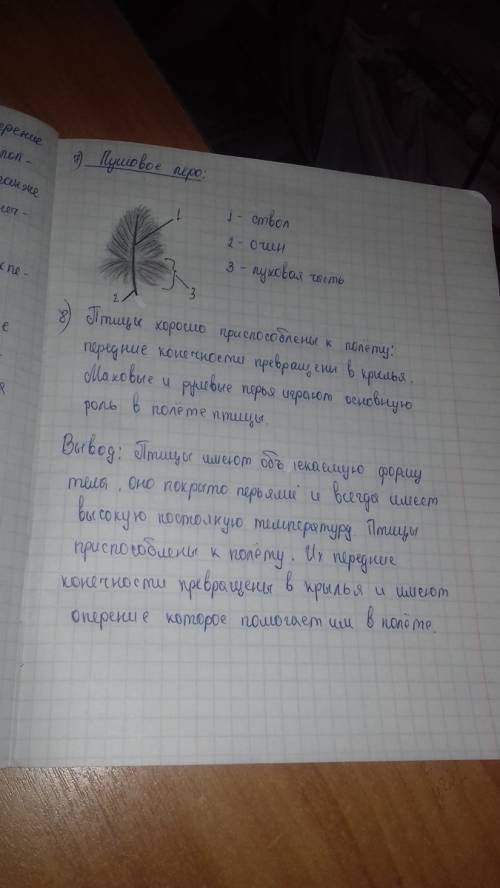 7) Пуховое перо:
1
2
3
1 - ствол
2 - очин
3 - пуховая часть
8) Птицы хорошо приспособлены к полёту:
передние конечности превращены в крылья.
Маховые и рулевые перья играют основную
роль в полёте птицы.
Вывод: Птицы имеют форму
тела, оно покрыто перьями и всегда имеет
высокую температуру. Птицы
приспособлены к полёту. Их передние
конечности превращены в крылья и имеют
оперение которое помогает им в полёте.